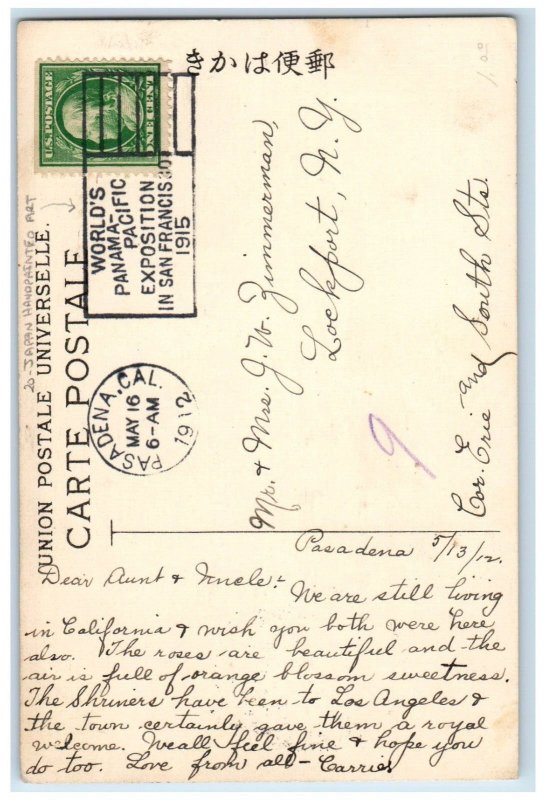 きかは便郵
UNION POSTALE UNIVERSELLE.
CARTE POSTALE
20-JAPAN HANDPAINTED ART
1.00
U.S. POSTAGE
ONE CENT
WORLD'S
PANAMA-
PACIFIC
EXPOSITION
IN SAN FRANCISCO
1915
PASADENA, CAL.
MAY 16
6-AM
1912
Mr. & Mrs. J. W. Zimmerman,
Lockport, N. Y.
Cor. Erie and South Sts.
9
Pasadena 5/13/12.
Dear Aunt & Uncle:-
We are still living
in California & wish you both were here
also. The roses are beautiful and the
air is full of orange blossom sweetness.
The Shriners have been to Los Angeles &
the town certainly gave them a royal
welcome. We all feel fine & hope you
do too. Love from all- Carrie.